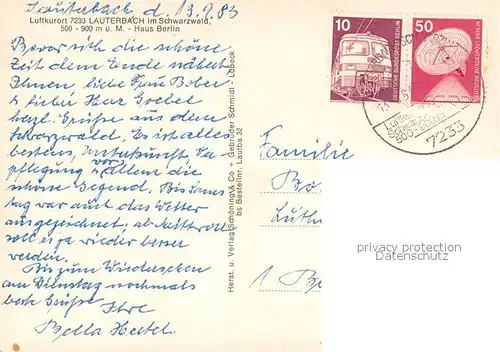 Lauterbach d. 13.9.83
Luftkurort 7233 LAUTERBACH im Schwarzwald,
500 - 900 m ü. M. - Haus Berlin
Bevor sich die schöne
Zeit dem Ende nähert
Ihnen, liebe Frau Bober
u. lieber Herr Goebel
herzl. Grüße aus dem
Schwarzwald. Es ist alles
bestens, Unterkunft, Ver-
pflegung vor allem die
schöne Gegend. Bis Sams
tag war auch das Wetter
ausgezeichnet, ab Mittwoch
soll es ja wieder besser
werden.
Bis zum Wiedersehen
am Dienstag nochmals
beste Grüße
Ihre
Bella Hertel
Herst. u. Verlag Schöning & Co + Gebrüder Schmidt, Lübeck
bs Bestellnr. Lautba 32
10
DEUTSCHE BUNDESPOST BERLIN
50
DEUTSCHE BUNDESPOST BERLIN
7233
Familie
Bo
Luth
1 B
privacy protection
www.oldthing.de